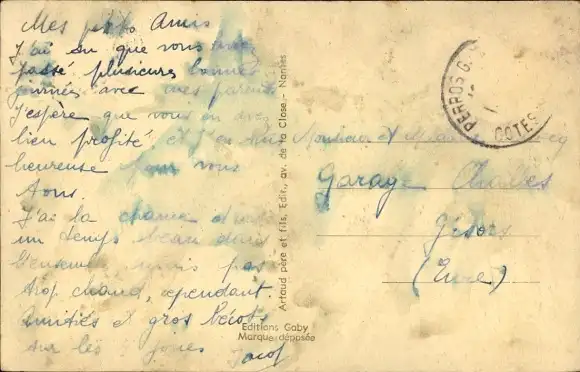 Mes petits Amis
J'ai su que vous avez
passé plusieurs bonnes
journées avec mes parents
J'espère que vous en avez
bien profité, et j'en suis
heureuse pour vous
tous.
J'ai la chance
un temps beau dans
l'ensemble, mais pas
trop chaud, cependant.
Amitiés et gros bécots
sur les joues
Artaud père et fils, Edit., av. de la Close - Nantes
Editions Gaby
Marque déposée
PERROS G
COTES
Monsieur et
Garage
Gisors
(Eure)